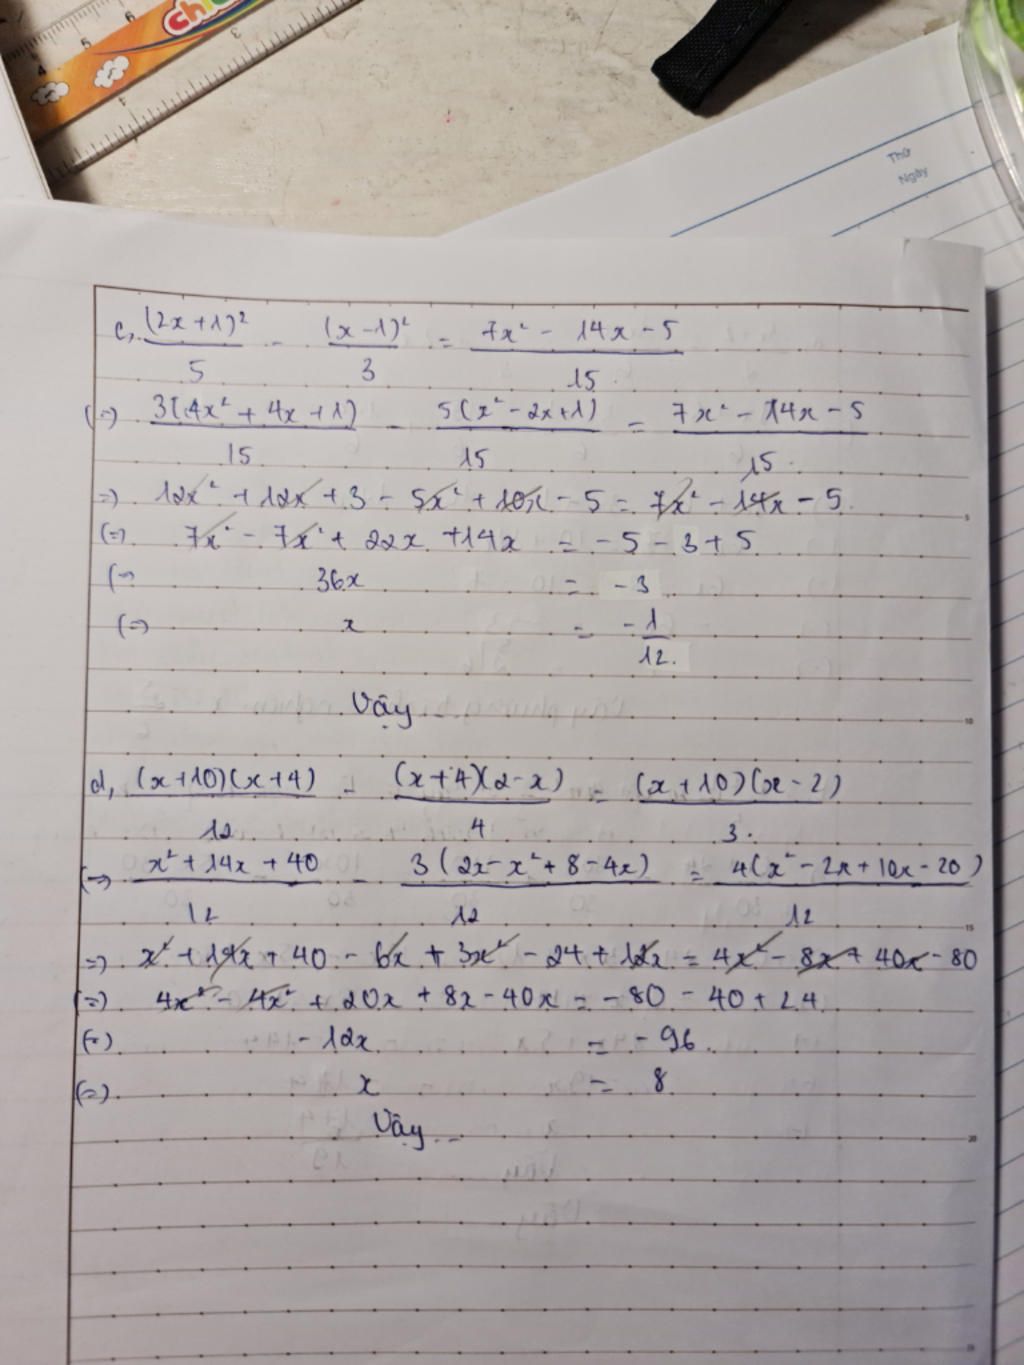 Thứ
Ngày
c, (2x+1)²/5 - (x-1)²/3 = 7x² - 14x - 5/15
(=) 3(4x² + 4x + 1)/15 - 5(x² - 2x + 1)/15 = 7x² - 14x - 5/15
=) 12x² + 12x + 3 - 5x² + 10x - 5 = 7x² - 14x - 5
(=) 7x² - 7x² + 22x + 14x = -5 - 3 + 5
(=) 36x = -3
(=) x = -1/12.
Vậy
d, (x+10)(x+4)/12 - (x+4)(2-x)/4 = (x+10)(x-2)/3
(=) x² + 14x + 40/12 - 3(2x - x² + 8 - 4x)/12 = 4(x² - 2x + 10x - 20)/12
=) x² + 14x + 40 - 6x + 3x² - 24 + 12x = 4x² - 8x + 40x - 80
(=) 4x² - 4x² + 20x + 8x - 40x = -80 - 40 + 24
(=) -12x = -96
(=) x = 8
Vậy